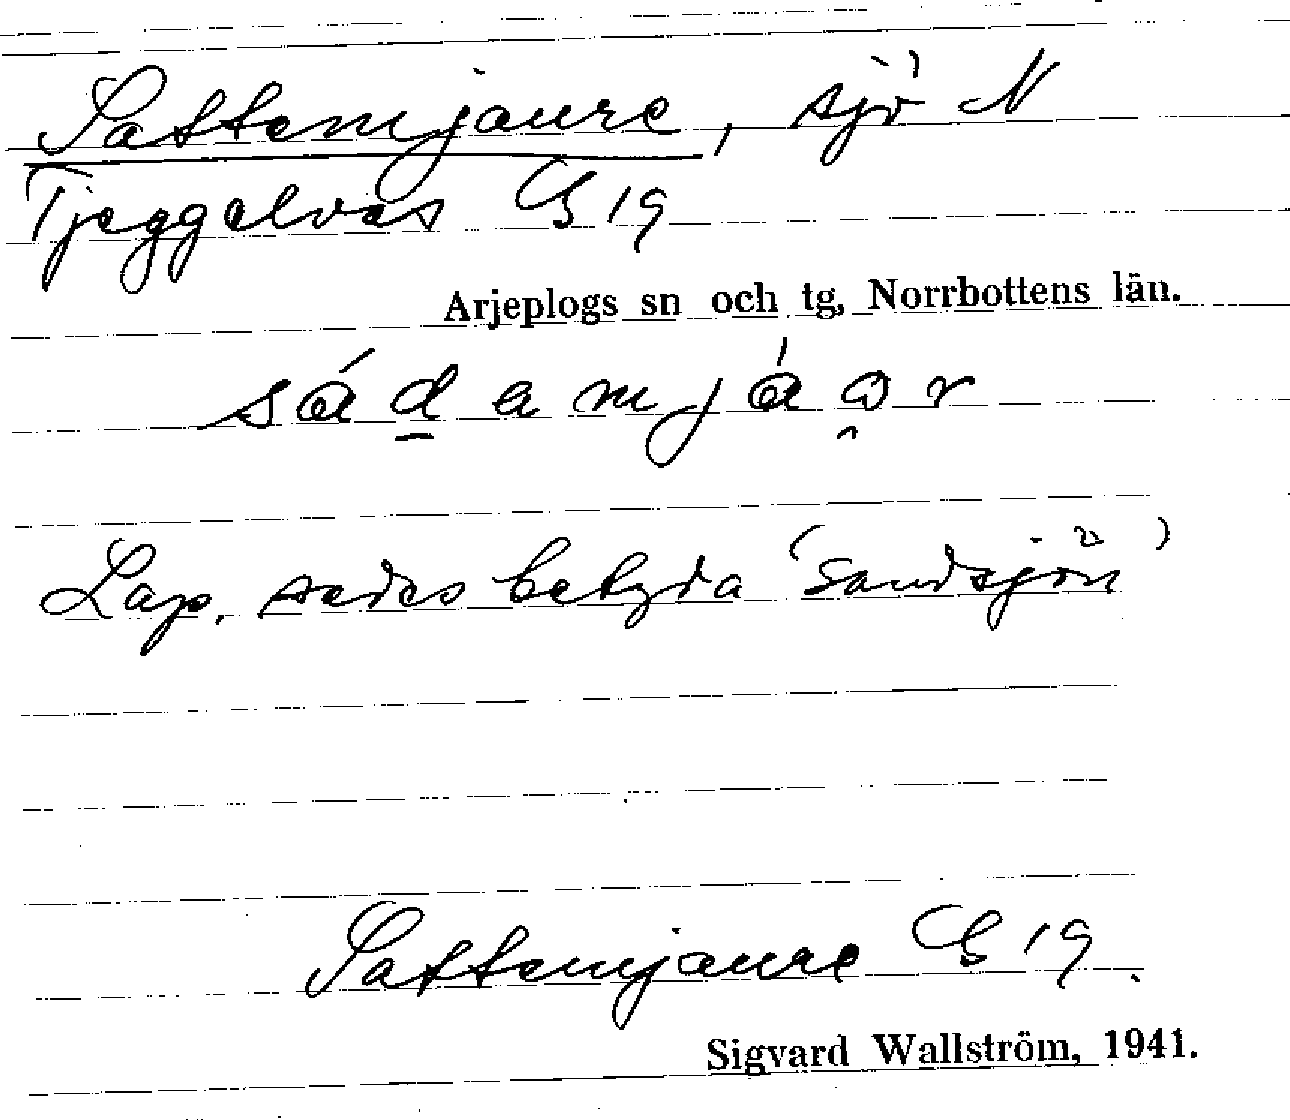 Sattemjaure, sjö N
Tjeggelvas G 19
Arjeplogs sn och tg, Norrbottens län.
sád̲emjáo̭r
Lap. sades betyda 'Sandsjön'
Sattemjaure G 19.
Sigvard Wallström, 1941.